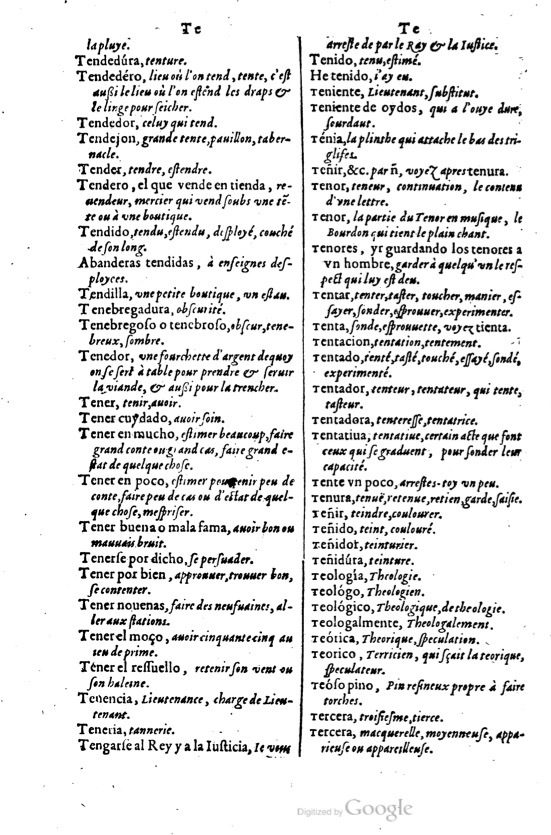 Te
la pluye.
Tendedúra, tenture.
Tendedéro, lieu où l'on tend, tente, c'est
aussi le lieu où l'on estẽd les draps &
le linge pour seicher.
Tendedor, celuy qui tend.
Tendejon, grande tente, pauillon, taber-
nacle.
Tender, tendre, estendre.
Tendero, el que vende en tienda, re-
uendeur, mercier qui vend soubs vne tẽ-
te ou à vne boutique.
Tendido, tendu, estendu, desployé, couché
de son long.
Abanderas tendidas, à enseignes des-
ployees.
Tendilla, vne petite boutique, vn estau.
Tenebregadura, obscurité.
Tenebregoso o tenebroso, obscur, tene-
breux, sombre.
Tenedor, vne fourchette d'argent dequoy
on se sert à table pour prendre & seruir
la viande, & aussi pour la trencher.
Tener, tenir, auoir.
Tener cuydado, auoir soin.
Tener en mucho, estimer beaucoup, faire
grand conte ou grand cas, faire grand e-
stat de quelque chose.
Tener en poco, estimer peu, tenir peu de
conte, faire peu de cas ou d'estat de quel-
que chose, mespriser.
Tener buena o mala fama, auoir bon ou
mauuais bruit.
Tenerse por dicho, se persuader.
Tener por bien, approuuer, trouuer bon,
se contenter.
Tener nouenas, faire des neufuaines, al-
ler aux stations.
Tener el moço, auoir cinquante cinq au
ieu de prime.
Téner el ressuello, retenir son vent ou
son haleine.
Tenencia, Lieutenance, charge de Lieu-
tenant.
Teneria, tannerie.
Tengarse al Rey y a la Iusticia, Ie vous
Te
arreste de par le Ray & la Iustice.
Tenido, tenu, estimé.
He tenido, i'ay eu.
Teniente, Lieutenant, substitut.
Teniente de oydos, qui a l'ouye dure,
sourdaut.
Ténia, la plinthe qui attache le bas des tri-
glifes.
Teñir, &c. par ñ, voyez apres tenura.
Tenor, teneur, continuation, le contenu
d'vne lettre.
Tenor, la partie du Tenor en musique, le
Bourdon qui tient le plain chant.
Tenores, yr guardando los tenores a
vn hombre, garder à quelqu'vn le res-
pect qui luy est deu.
Tentar, tenter, taster, toucher, manier, es-
sayer, sonder, esprouuer, experimenter.
Tenta, sonde, esprouuette, voyez tienta.
Tentacion, tentation, tentement.
Tentado, tenté, tasté, touché, essayé, sondé,
experimenté.
Tentador, tenteur, tentateur, qui tente,
tasteur.
Tentadora, tenteresse, tentatrice.
Tentatiua, tentatiue, certain acte que font
ceux qui se graduent, pour sonder leur
capacité.
Tente vn poco, arrestes-toy vn peu.
Tenura, tenuë, retenue, retien, garde, saisie.
Teñir, teindre, coulourer.
Teñido, teint, coulouré.
Teñidor, teinturier.
Teñidúra, teinture.
Teología, Theologie.
Teológo, Theologien.
Teológico, Theologique, de theologie.
Teologalmente, Theologalement.
Teótica, Theorique, speculation.
Teorico, Terricien, qui sçait la teorique,
speculateur.
Teóso pino, Pin resineux propre à faire
torches.
Tercera, troisiesme, tierce.
Tercera, macquerelle, moyenneuse, appa-
rieuse ou appareilleuse.
Digitized by Google